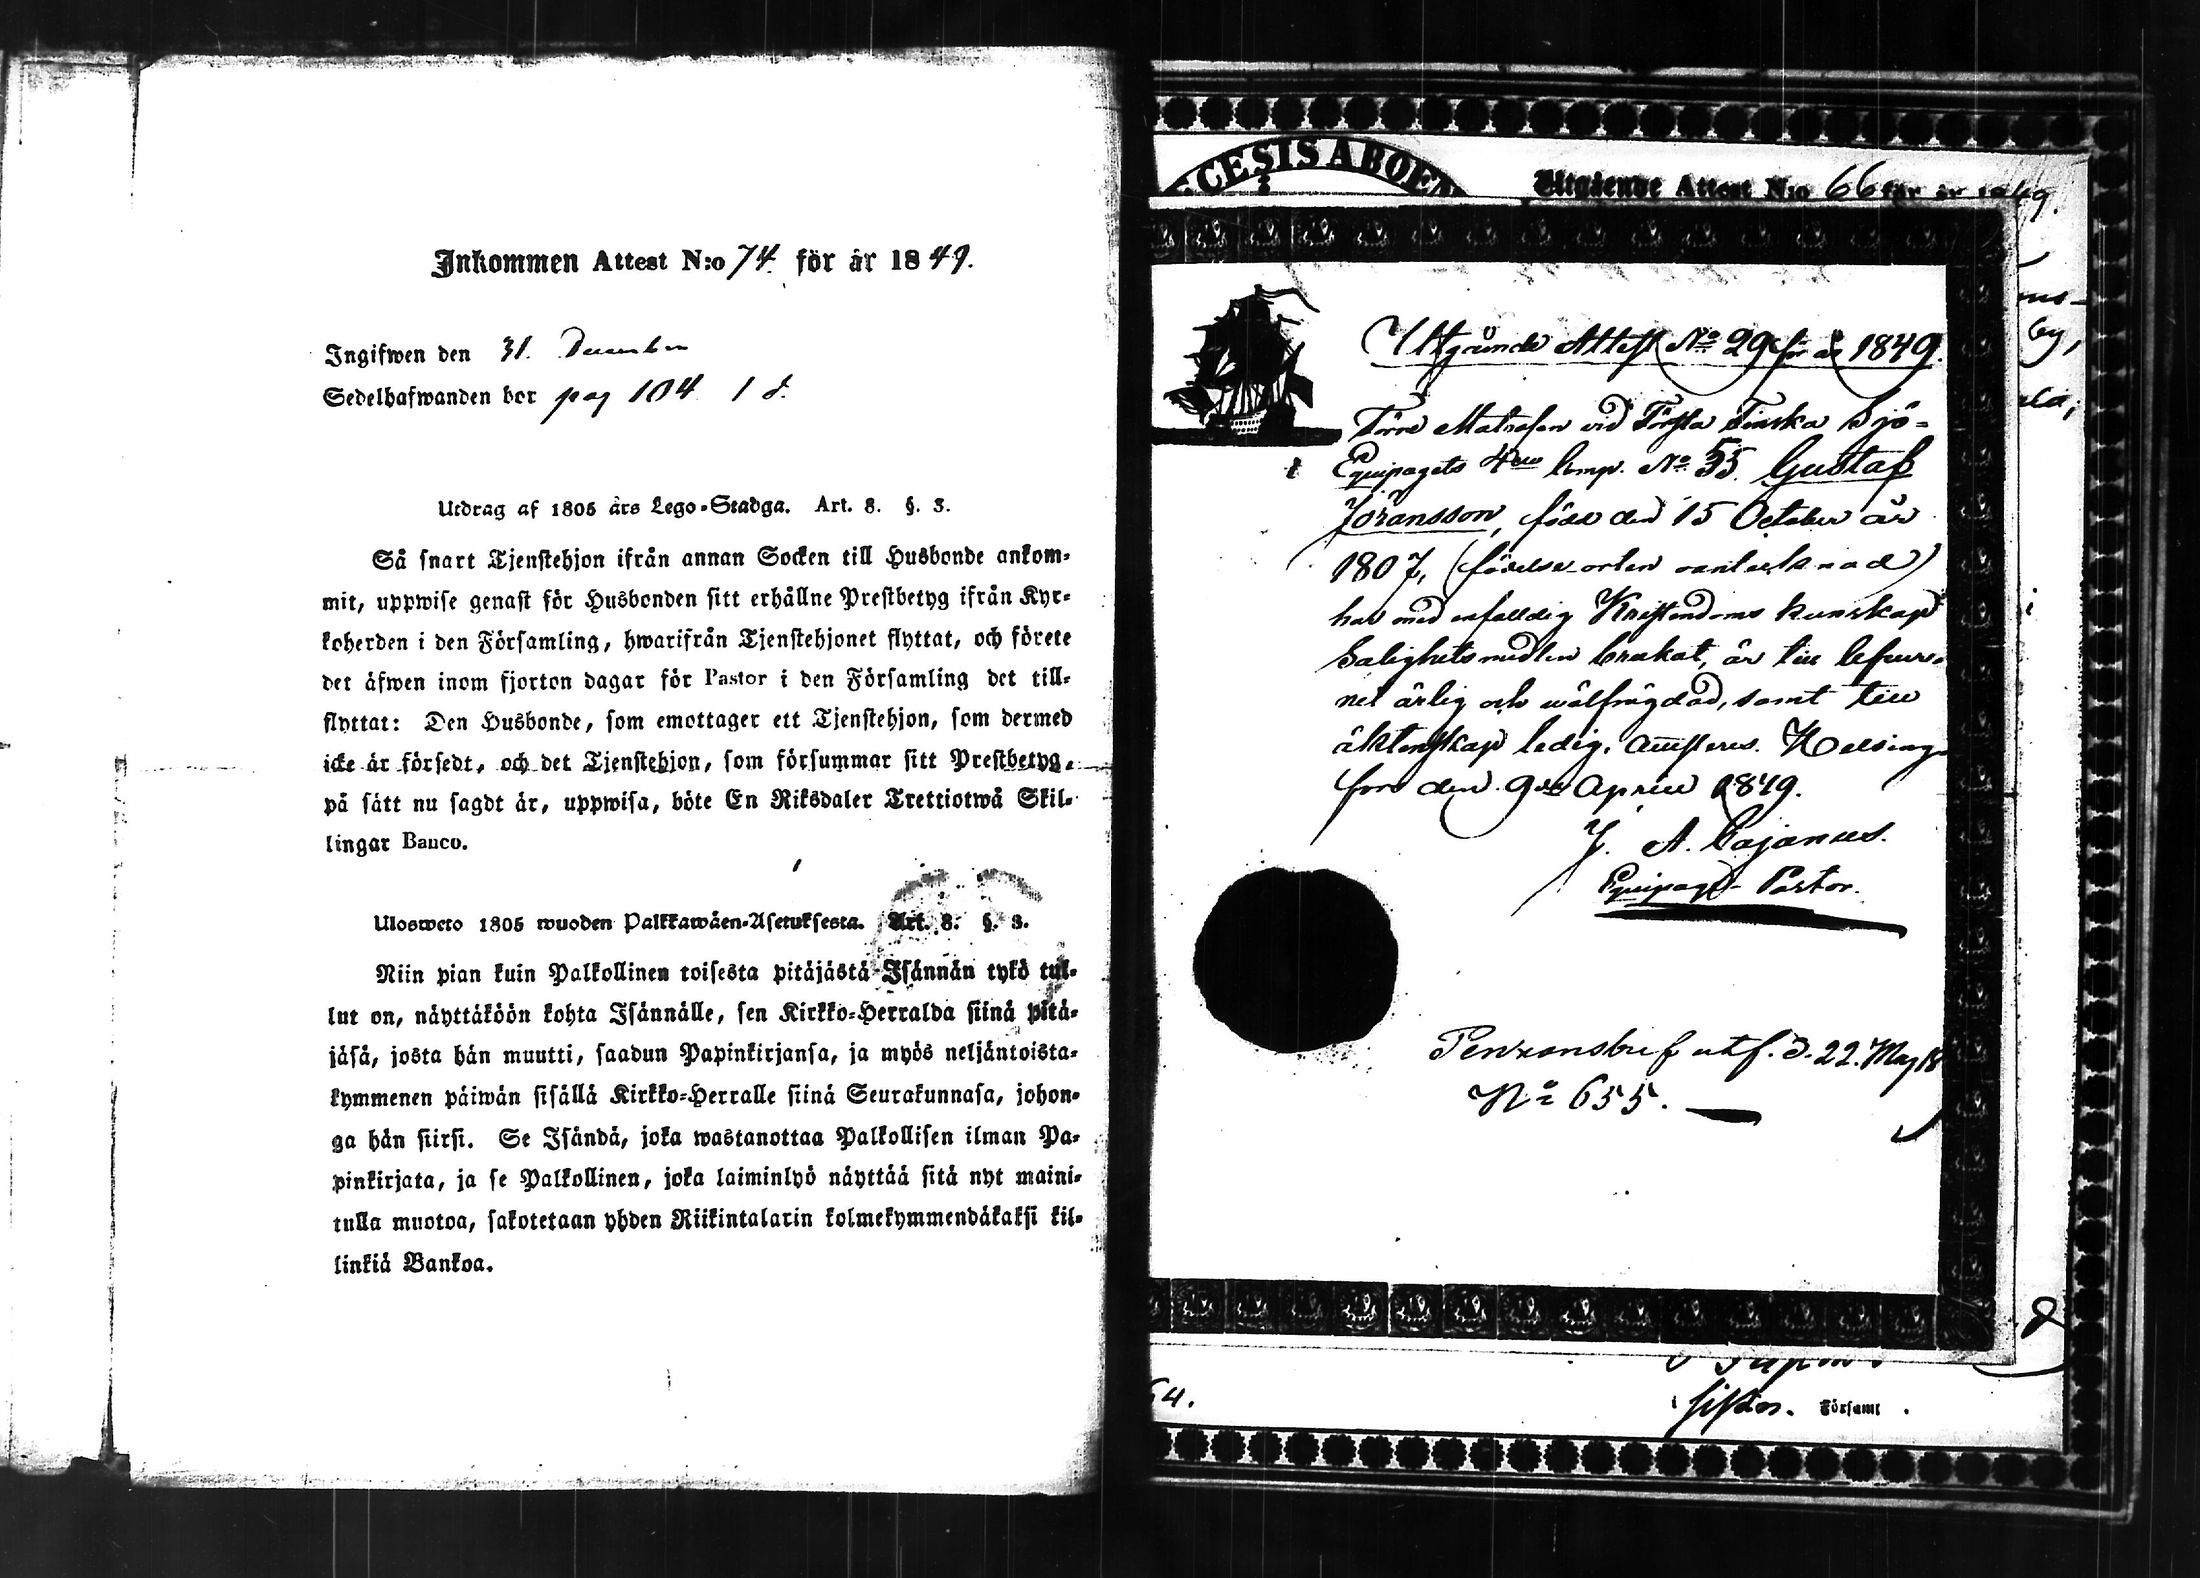 Inkommen Attest N:o 74. för år 1849.
Ingifwen den 31. December
Sedelhafwanden bor pag 104 1 d.
Utdrag af 1805 års Lego-Stadga. Art. 8. §. 3.
Så snart Tjenstehjon ifrån annan Socken till Husbonde ankom-
mit, uppwise genast för Husbonden sitt erhållne Prestbetyg ifrån Kyr-
koherden i den Församling, hwarifrån Tjenstehjonet flyttat, och förete
det äfwen inom fjorton dagar för Pastor i den Församling det till-
flyttat: Den Husbonde, som emottager ett Tjenstehjon, som dermed
icke är försedt, och det Tjenstehjon, som försummar sitt Prestbetyg,
på sätt nu sagdt är, uppwisa, böte En Riksdaler Trettiotwå Skil-
lingar Banco.
Ulosweto 1805 wuoden Palkkawäen-Asetuksesta. Art. 8. §. 3.
Niin pian kuin Palkollinen toisesta pitäjästä Isännän tykö tul-
lut on, näyttäköön kohta Isännälle, sen Kirkko-Herralda siinä pitä-
jäsä, josta hän muutti, saadun Papinkirjansa, ja myös neljäntoista-
kymmenen päiwän sisällä Kirkko-Herralle siinä Seurakunnasa, johon-
ga hän siirsi. Se Isändä, joka wastanottaa Palkollisen ilman Pa-
pinkirjata, ja se Palkollinen, joka laiminlyö näyttää sitä nyt maini-
tulla muotoa, sakotetaan yhden Riikintalarin kolmekymmendäkaksi kil-
linkiä Bankoa.
CESIS ABOEN
Utgående Attest N:o 66 för år 1849.
Utgående Attest No 29 för år 1849.
Förre Matrosen vid Första Finska Sjö-
Equipagets 4de Comp. No 55 Gustaf
Jöransson, född den 15 October år
1807, (födelse orten oantecknad)
har med enfalldig Kristendoms kunskap
Salighetsmedlen brukat, är till lefver-
net ärlig och wälfrägdad, samt till
äktenskap ledig, attesteras. Helsing-
fors den 9de April 1849.
J. A. Cajanus.
Equipage-Pastor.
Pensionsbref utf. d. 22. May 18
No 655.
64.
Församl.